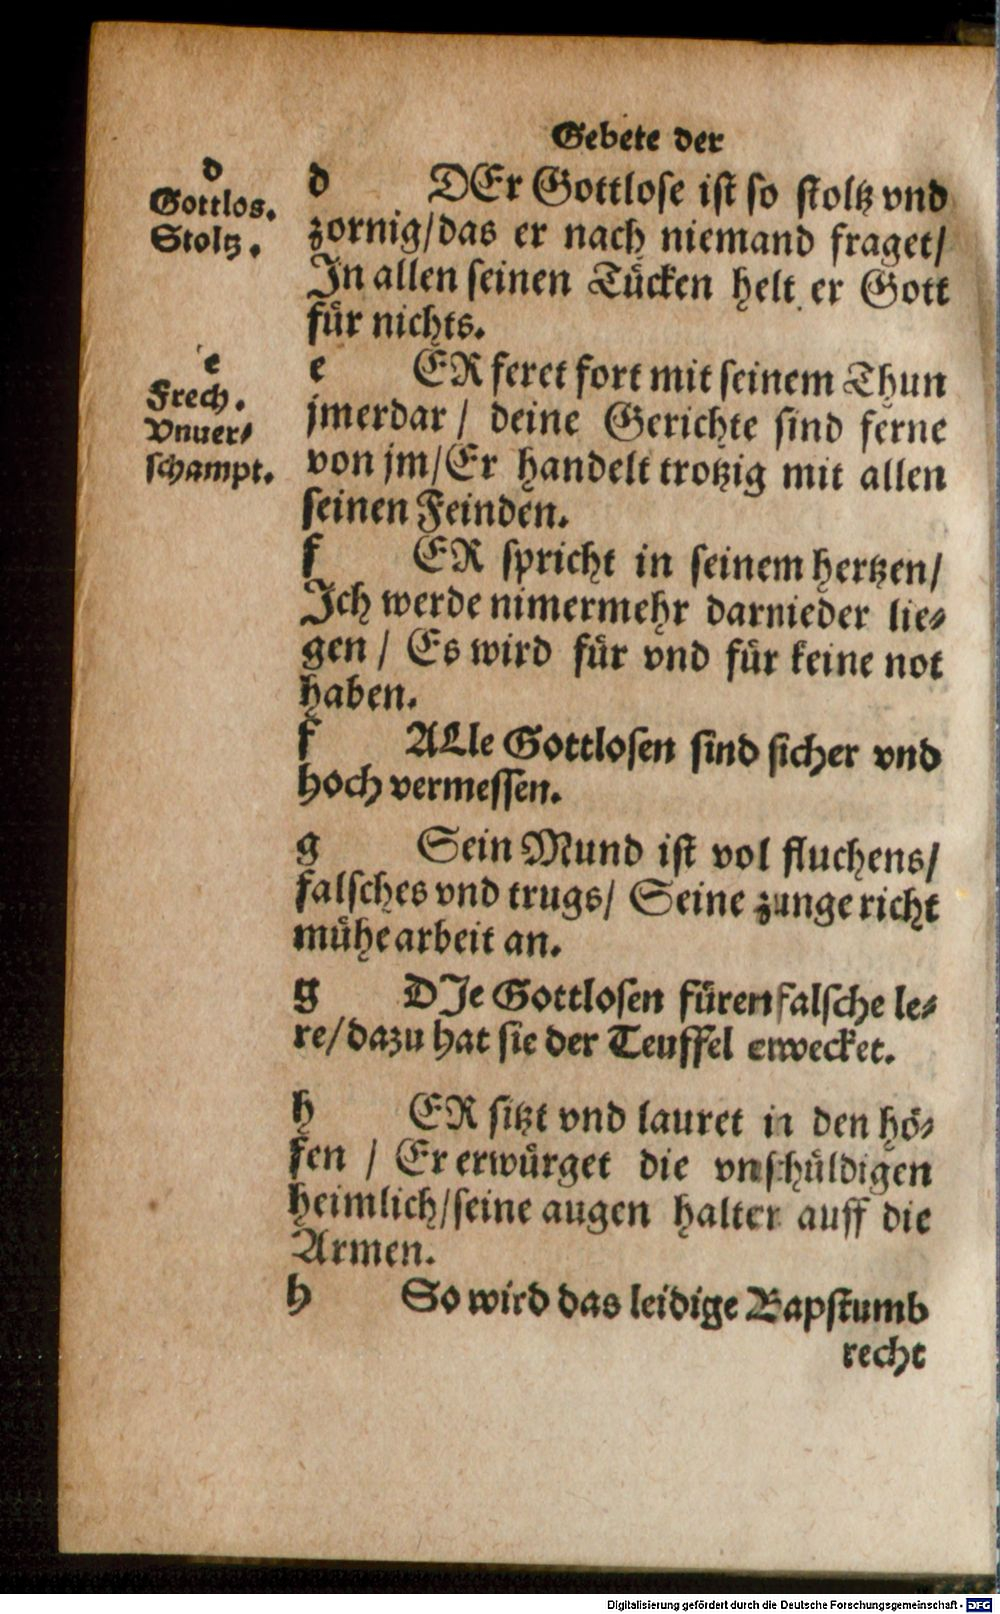 Gebete der
d
Gottlos.
Stoltz.
d DEr Gottlose ist so stoltz vnd
zornig/das er nach niemand fraget/
In allen seinen Tücken helt er Gott
für nichts.
e
Frech.
Vnuer-
schampt.
e ER feret fort mit seinem Thun
jmerdar / deine Gerichte sind ferne
von jm/Er handelt trotzig mit allen
seinen Feinden.
f ER spricht in seinem hertzen/
Ich werde nimermehr darnieder lie-
gen / Es wird für vnd für keine not
haben.
f ALle Gottlosen sind sicher vnd
hoch vermessen.
g Sein Mund ist vol fluchens/
falsches vnd trugs/ Seine zunge richt
mühe arbeit an.
g DIe Gottlosen füren falsche le-
re/dazu hat sie der Teuffel erwecket.
h ER sitzt vnd lauret in den hö-
fen / Er erwürget die vnschüldigen
heimlich/seine augen halten auff die
Armen.
h So wird das leidige Bapstumb
recht
Digitalisierung gefördert durch die Deutsche Forschungsgemeinschaft - DFG